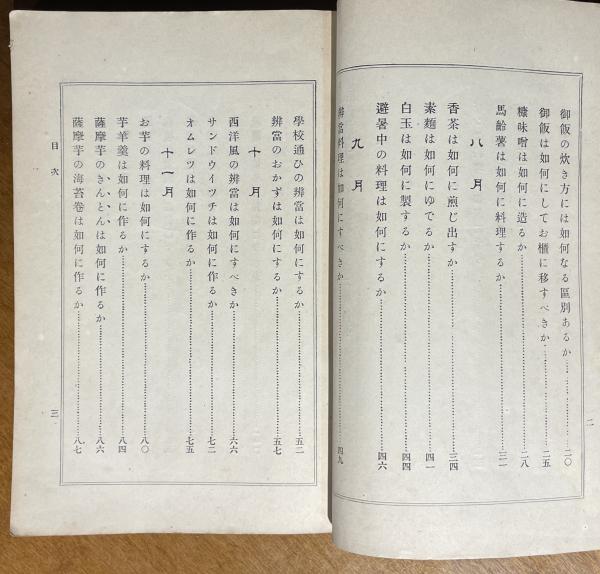 御飯の炊き方には如何なる區別あるか…………二〇
御飯は如何にしてお櫃に移すべきか…………二五
糠味噌は如何に造るか…………二八
馬齡薯は如何に料理するか…………三一
八月
香茶は如何に煎じ出すか…………三四
素麺は如何にゆでるか…………四一
白玉は如何に製するか…………四四
避暑中の料理は如何にするか…………四六
九月
辨當料理は如何にすべきか…………四九
二
學校通ひの辨當は如何にするか…………五二
辨當のおかずは如何にするか…………五七
十月
西洋風の辨當は如何にすべきか…………六六
サンドウイツチは如何に作るか…………七二
オムレツは如何に作るか…………七五
十一月
お芋の料理は如何にするか…………八〇
芋羊羹は如何に作るか…………八四
薩摩芋のきんとんは如何に作るか…………八六
薩摩芋の海苔卷は如何に作るか…………八七
目次
三